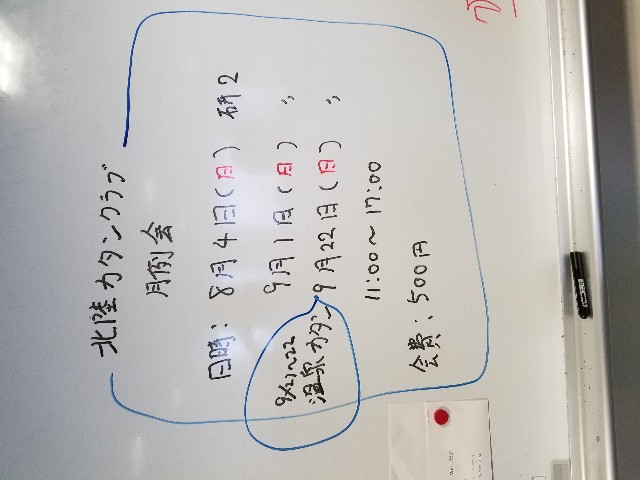 北陸カタンクラブ
月例会
日時：8月4日(日) 研2
9月1日(日) 〃
9月22日(日) 〃
9/21~22
温泉カタン
11:00～17:00
会費：500円